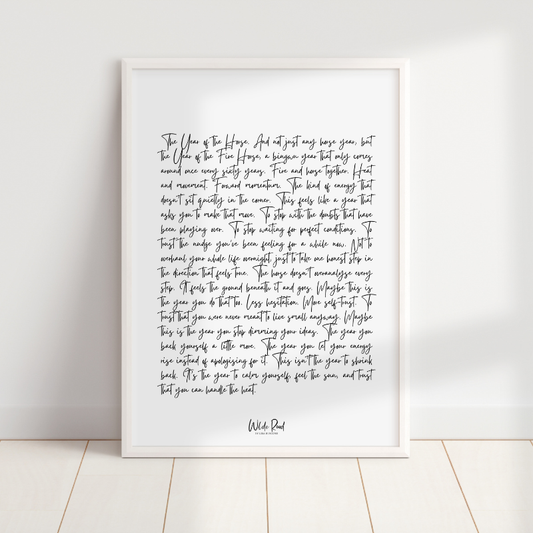 The Year of the Horse. And not just any horse year, but
the Year of the Fire Horse, a bingwu year that only comes
around once every sixty years. Fire and horse together. Heat
and movement. Forward momentum. The kind of energy that
doesn't sit quietly in the corner. This feels like a year that
asks you to make that move. To stop with the doubts that have
been playing over. To stop waiting for perfect conditions. To
trust the nudge you've been feeling for a while now. Not to
overhaul your whole life overnight, just to take one honest step in
the direction that feels true. The horse doesn't overanalyse every
step. It feels the ground beneath it and goes. Maybe this is
the year you do that too. Less hesitation. More self-trust. To
trust that you were never meant to live small anyway. Maybe
this is the year you stop dimming your ideas. The year you
back yourself a little more. The year you let your energy
rise instead of apologising for it. This isn't the year to shrink
back. It's the year to calm yourself, feel the sun, and trust
that you can handle the heat.